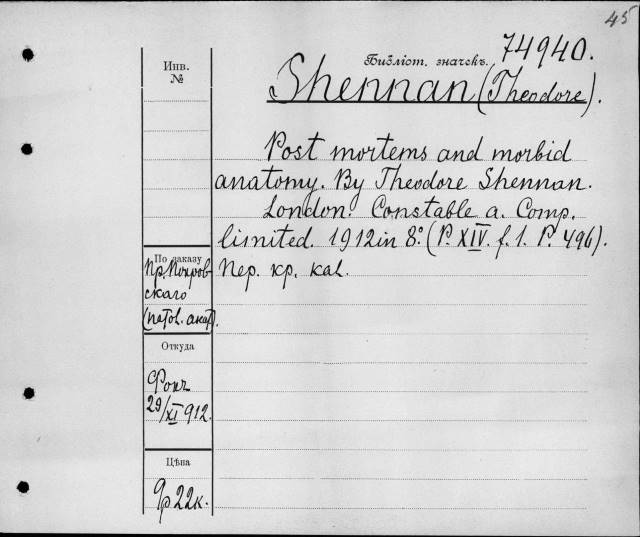 45
Библіот. значекъ. 74940.
Инв.
№
Shennan (Theodore).
Post mortems and morbid
anatomy. By Theodore Shennan.
London. Constable a. Comp.
limited. 1912 in 8° (P. XIV. f. 1. P. 496).
Пер. кр. кал.
По заказу
Пр. Покров-
скаго
Откуда
29/XI 912.
Цѣна
9р 22к.